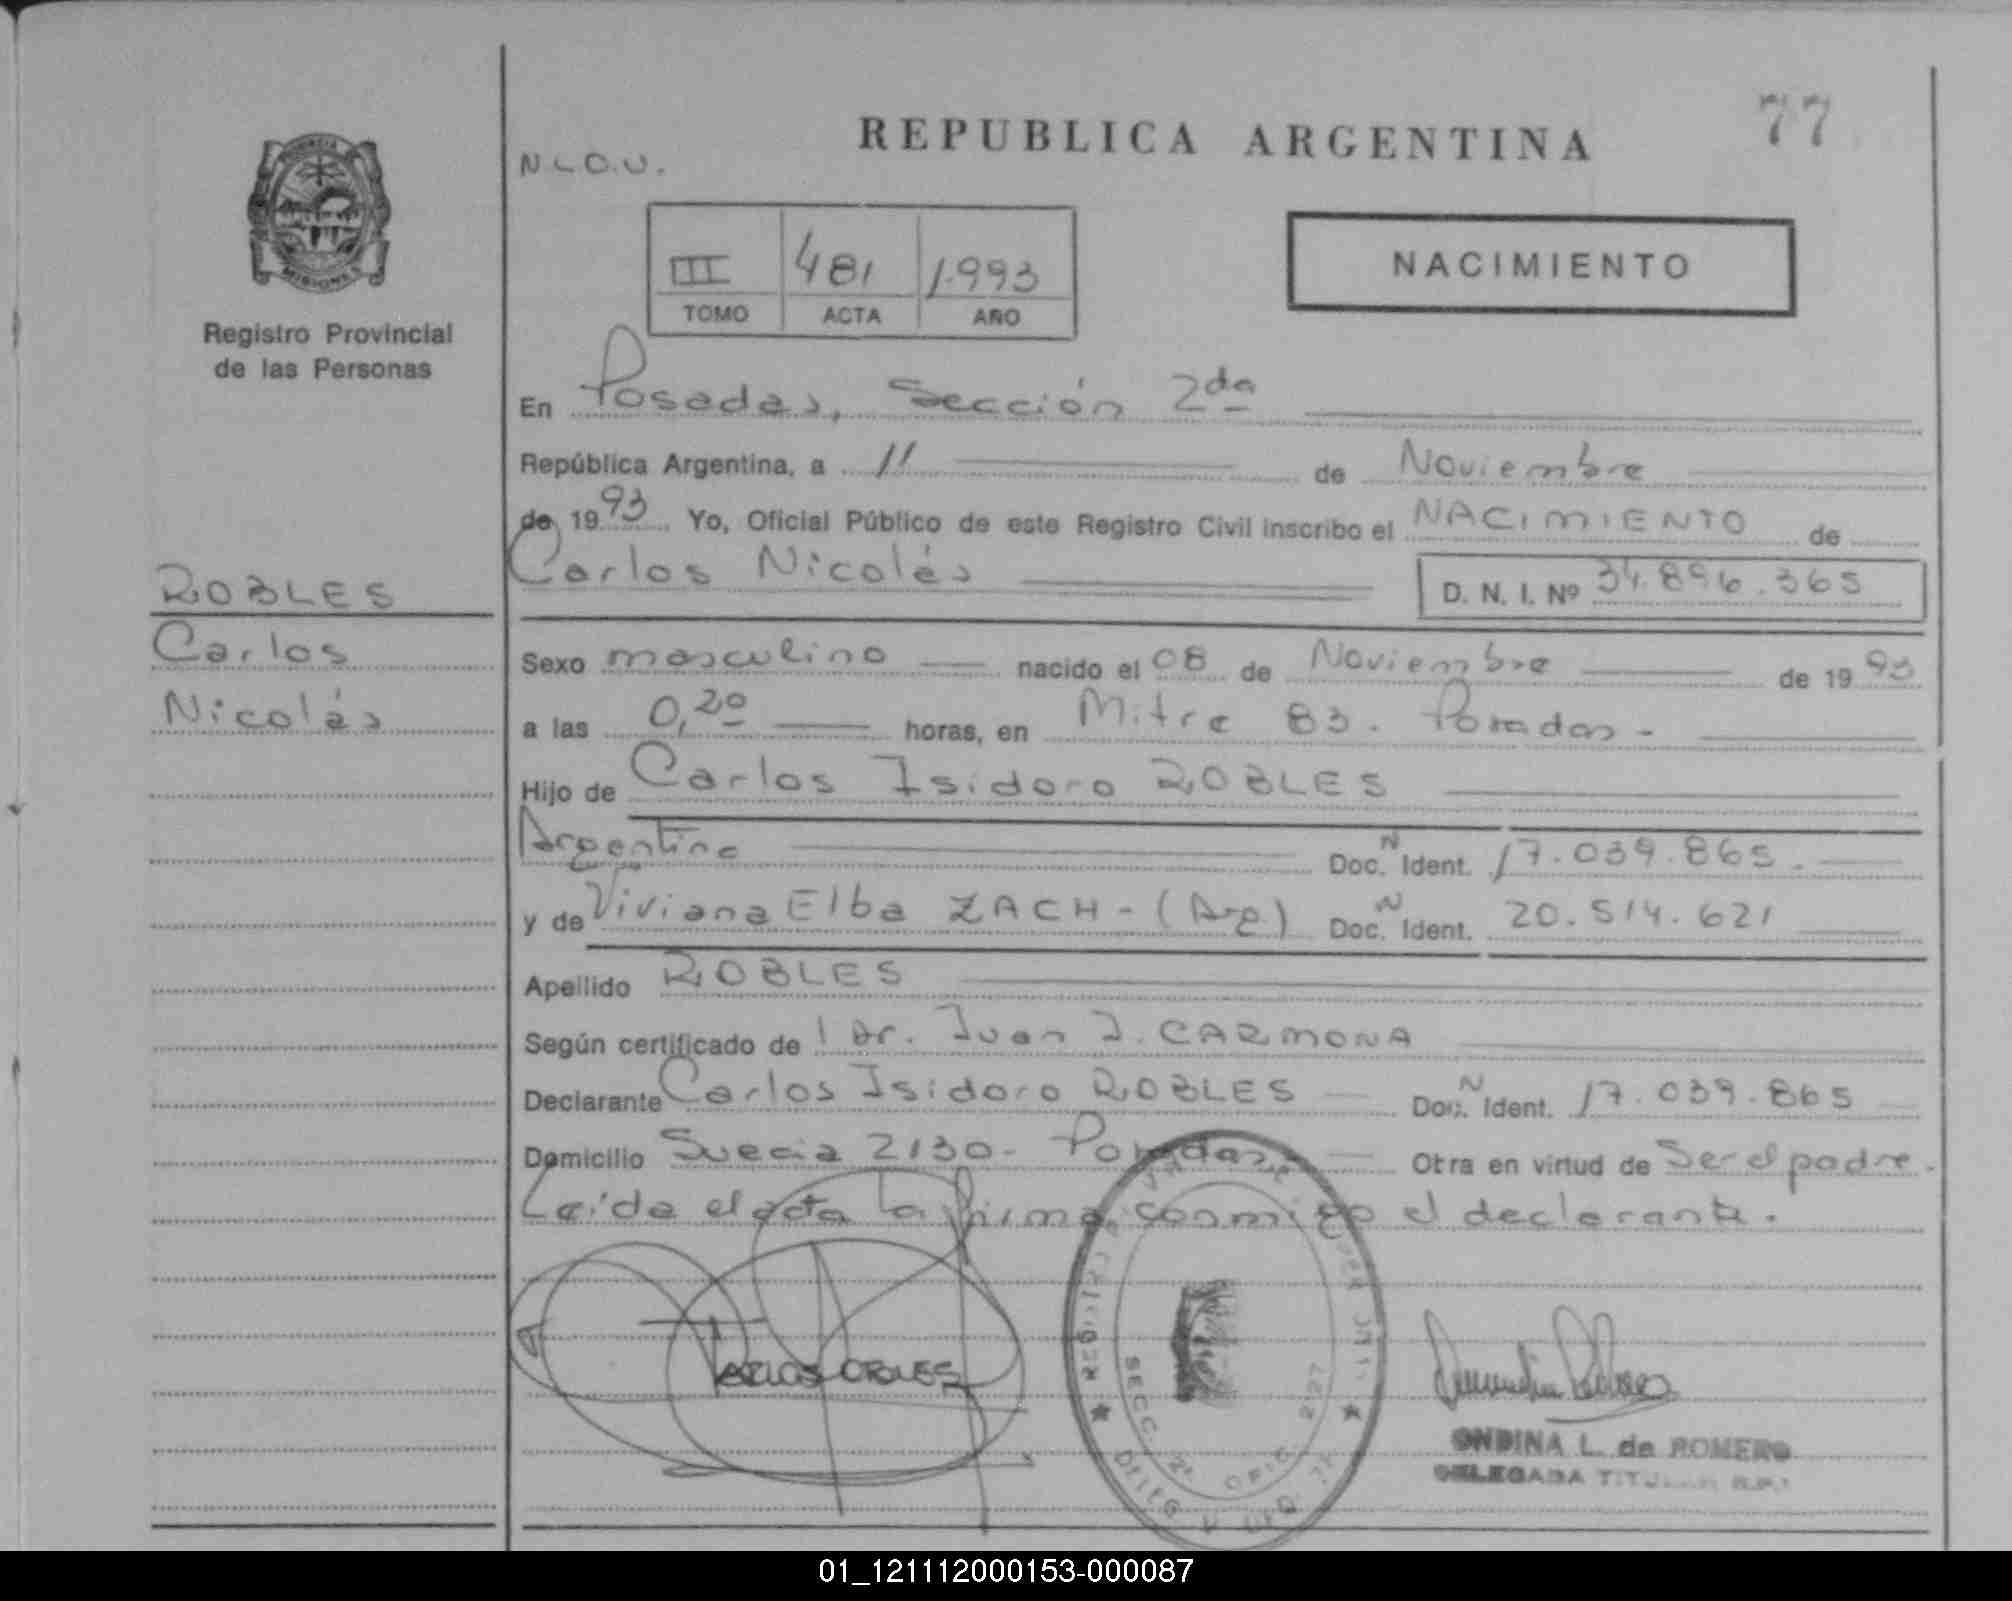 REPUBLICA ARGENTINA
77
N L O.U.
III 481 1.993
TOMO ACTA AÑO
NACIMIENTO
MISIONES
Registro Provincial
de las Personas
En Posadas, Sección 2da
República Argentina, a 11 de Noviembre
de 1993 Yo, Oficial Público de este Registro Civil inscribo el NACIMIENTO de
Carlos Nicolás D. N. I. Nº 34.896.365
ROBLES
Carlos
Nicolás
Sexo masculino nacido el 08 de Noviembre de 1993
a las 0,20 horas, en Mitre 83. Posadas -
Hijo de Carlos Isidoro ROBLES
Argentino Doc. N Ident. 17.039.865.
y de Viviana Elba ZACH - (Arg) Doc. N Ident. 20.514.621
Apellido ROBLES
Según certificado de l Dr. Juan J. CARMONA
Declarante Carlos Isidoro ROBLES Doc. N Ident. 17.039.865
Domicilio Suecia 2130 - Posadas Otra en virtud de Ser el padre.
Leída el acta la firma conmigo el declarante.
SECC. 2ª OFIC 227
ONDINA L. de ROMERO
DELEGADA TITULAR R.P.
01_121112000153-000087